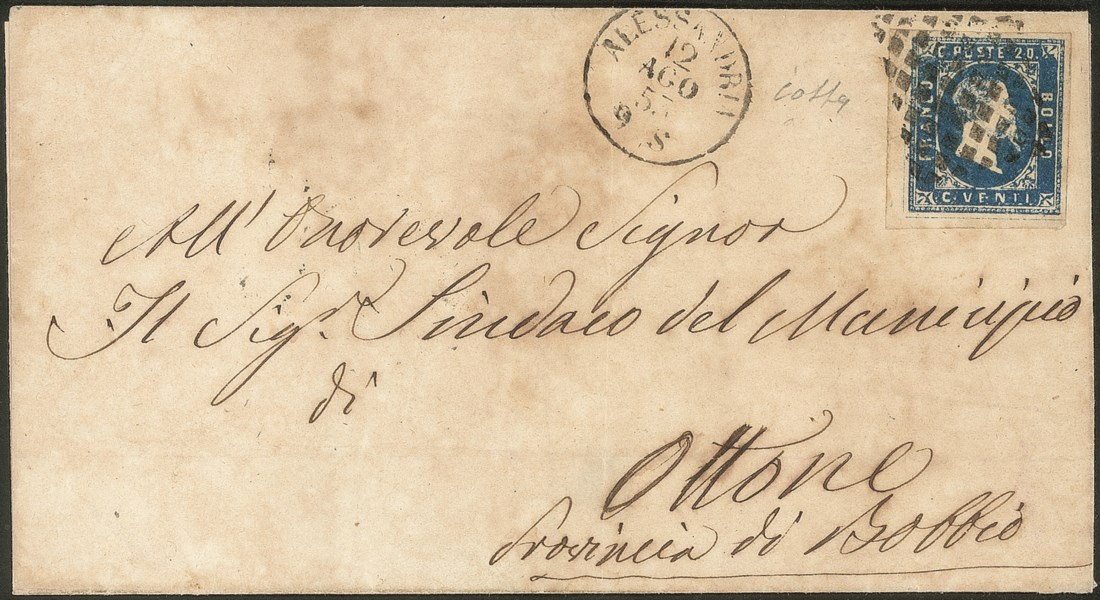 ALESSANDRIA
12
AGO
9 S
C. POSTE 20.
FRANCO
BOLLO
C. VENTI.
All' Onorevole Signor
Il Sigr. Sindaco del Municipio
di
Ottone
Provincia di Bobbio